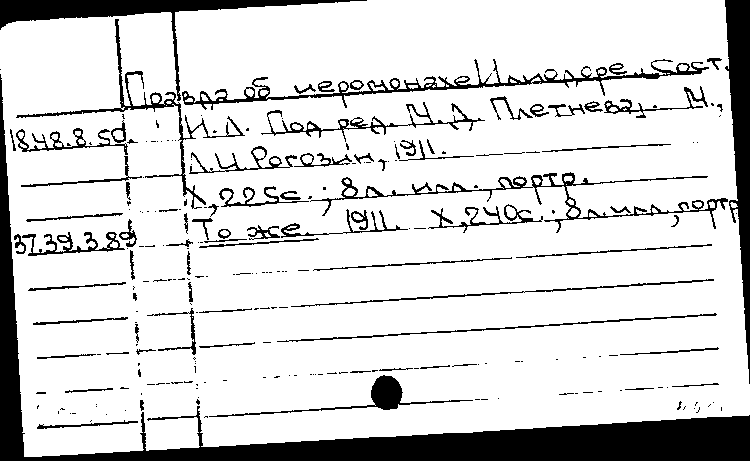 Правда об иеромонахе Илиодоре. Сост.
18.48.8.50. И.Л. Под ред. М.Д. Плетнева. М.,
Л.И. Рогозин, 1911.
X, 225с.; 8л. илл., портр.
37.39.3.89 То же. 1911. X, 240с.; 8л. илл., портр